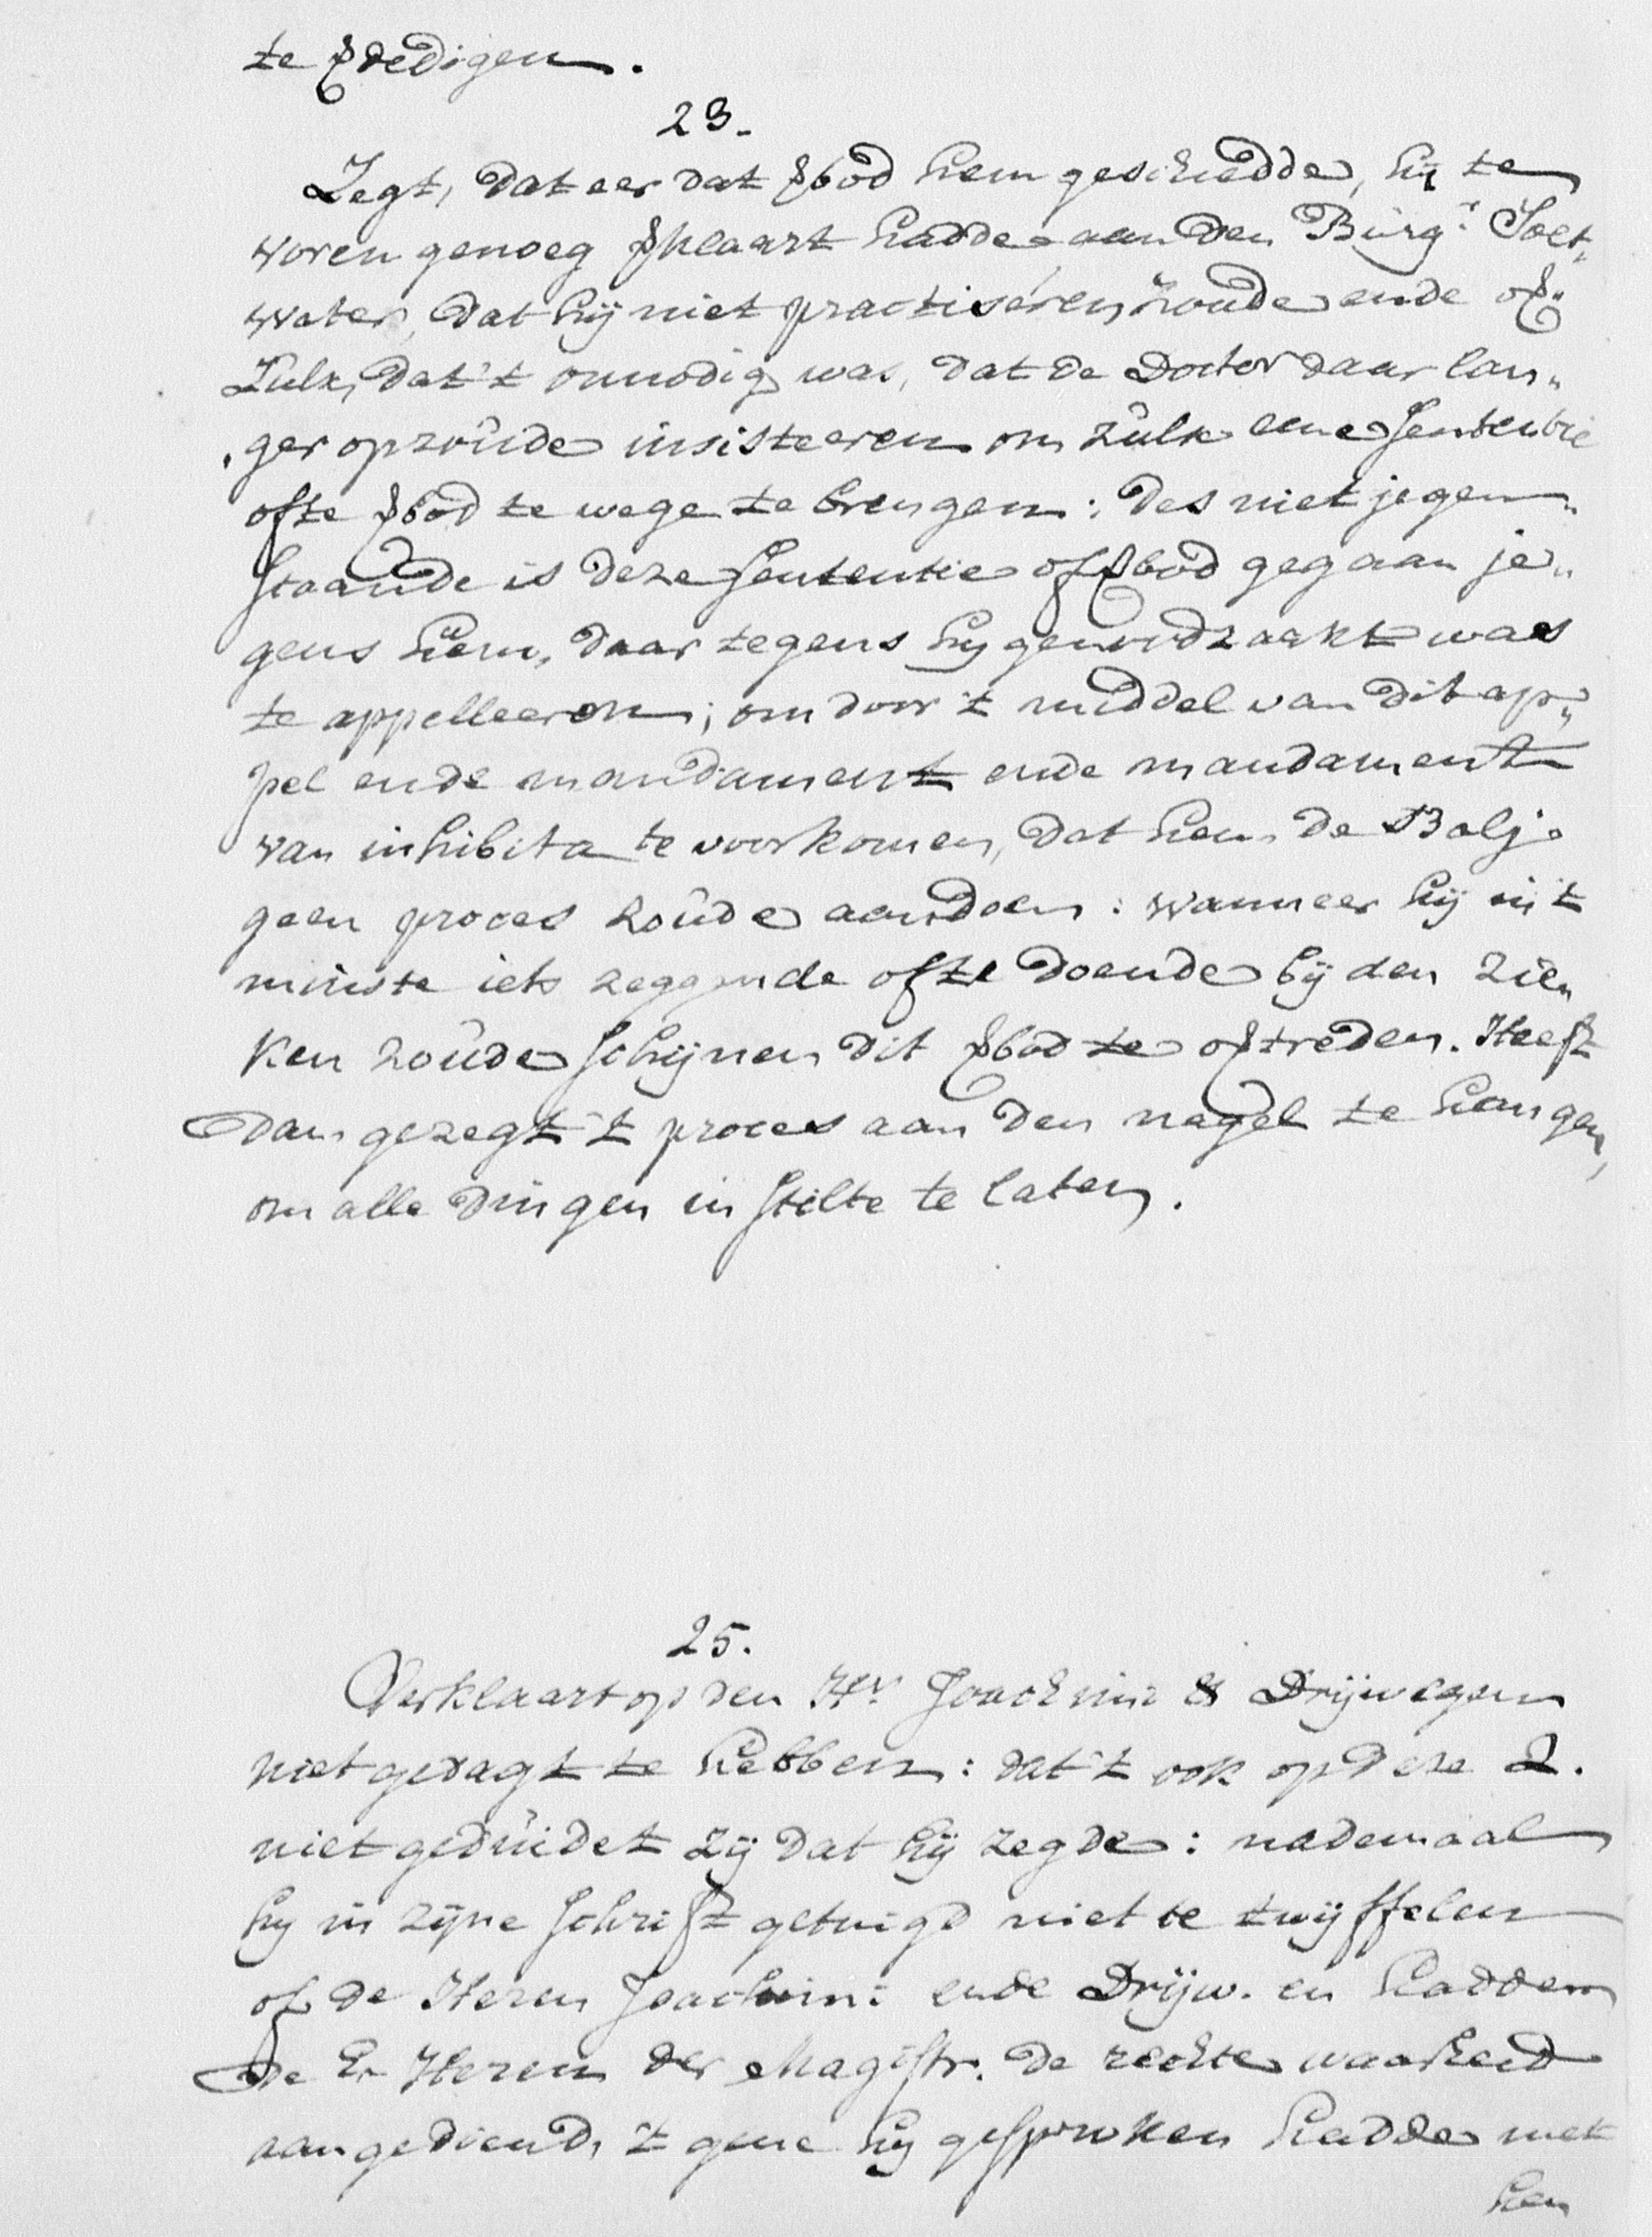 te ꝟdedigen.
23.
Zegt, dat eer dat ꝟbod hem geschiedde, hij te
voren genoeg ꝟklaart hadde aan den Burgʳ. Soet„
water, dat hij niet practiseren zoude ende oꝟ„
Zulx, dat 't onnodig was, dat de Doctor daar lan„
ger op zoude insisteeren om zulk eene Sententie
ofte ꝟbod te wege te brengen: des niet jegen„
staande is deze Sententie of ꝟbod gegaan je„
gens hem, daar tegens hij genoodzaakt was
te appelleeren; om door 't middel van dit ap„
pel ende mandament ende mandament
van inhibitα te voorkomen, dat hem de Balj.
geen proces zoude aandoen: wanneer hij in 't
minste iets zeggende ofte doende bij den zie„
ken zoude schijnen dit ꝟbod te oꝟtreden. Heeft
dan gezegt 't proces aan den nagel te hangen,
om alle dingen in stilte te laten.
25.
Verklaart op den Hr. Joachimi & Drijwegen
niet gedagt te hebben: dat 't ook op deze 2.
niet geduidet zij dat hij zegde: nademaal
hij in zijne schrift getuigd niet te twijffelen
of de Heren Joachim: ende Drijw. en hadden
de Er Heren der Magistr. de rechte waarheid
aangediend, 't gene hij gesproken hadde met
hen